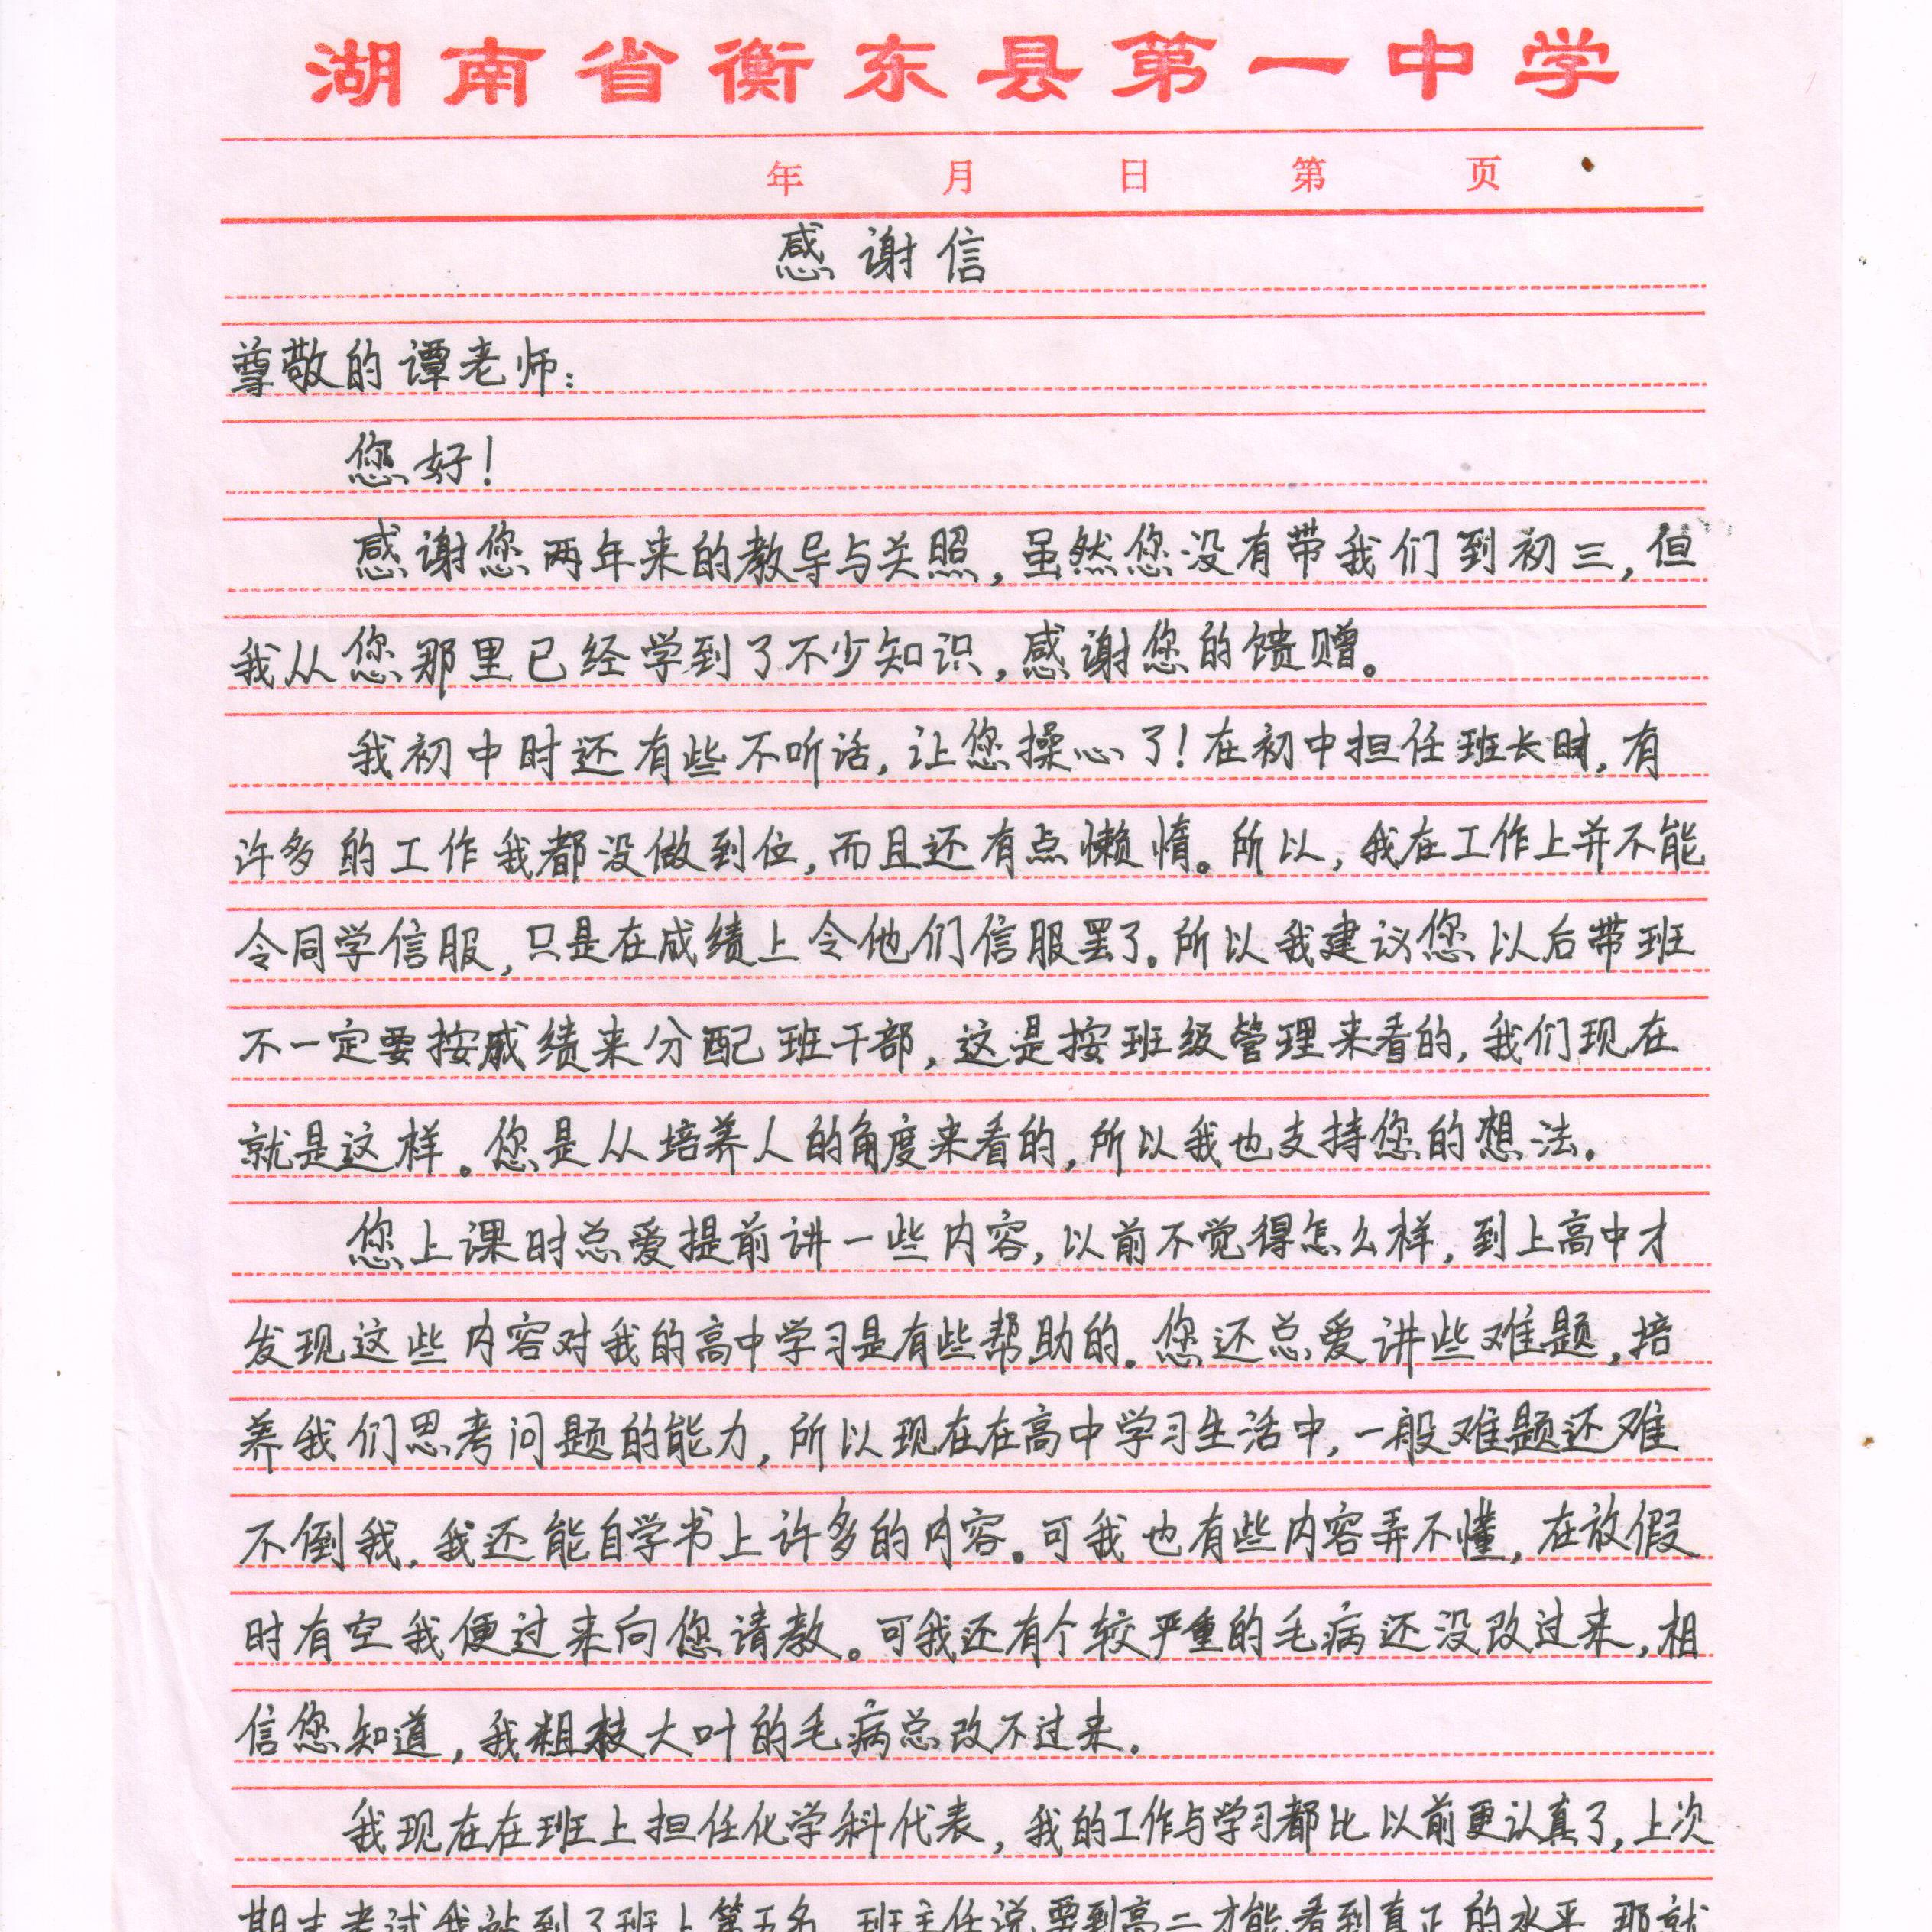 湖南省衡东县第一中学
年 月 日 第 页
感谢信
尊敬的谭老师：
您好！
感谢您两年来的教导与关照，虽然您没有带我们到初三，但
我从您那里已经学到了不少知识，感谢您的馈赠。
我初中时还有些不听话，让您操心了！在初中担任班长时，有
许多的工作我都没做到位，而且还有点懒惰。所以，我在工作上并不能
令同学信服，只是在成绩上令他们信服罢了。所以我建议您以后带班
不一定要按成绩来分配班干部，这是按班级管理来看的，我们现在
就是这样。您是从培养人的角度来看的，所以我也支持您的想法。
您上课时总爱提前讲一些内容，以前不觉得怎么样，到上高中才
发现这些内容对我的高中学习是有些帮助的。您还总爱讲些难题，培
养我们思考问题的能力，所以现在在高中学习生活中，一般难题还难
不倒我，我还能自学书上许多的内容。可我也有些内容弄不懂，在放假
时有空我便过来向您请教。可我还有个较严重的毛病还没改过来，相
信您知道，我粗枝大叶的毛病总改不过来。
我现在在班上担任化学科代表，我的工作与学习都比以前更认真了，上次
期末考试我站到了班上第五名，班主任说要到高二才能看到真正的水平，那就